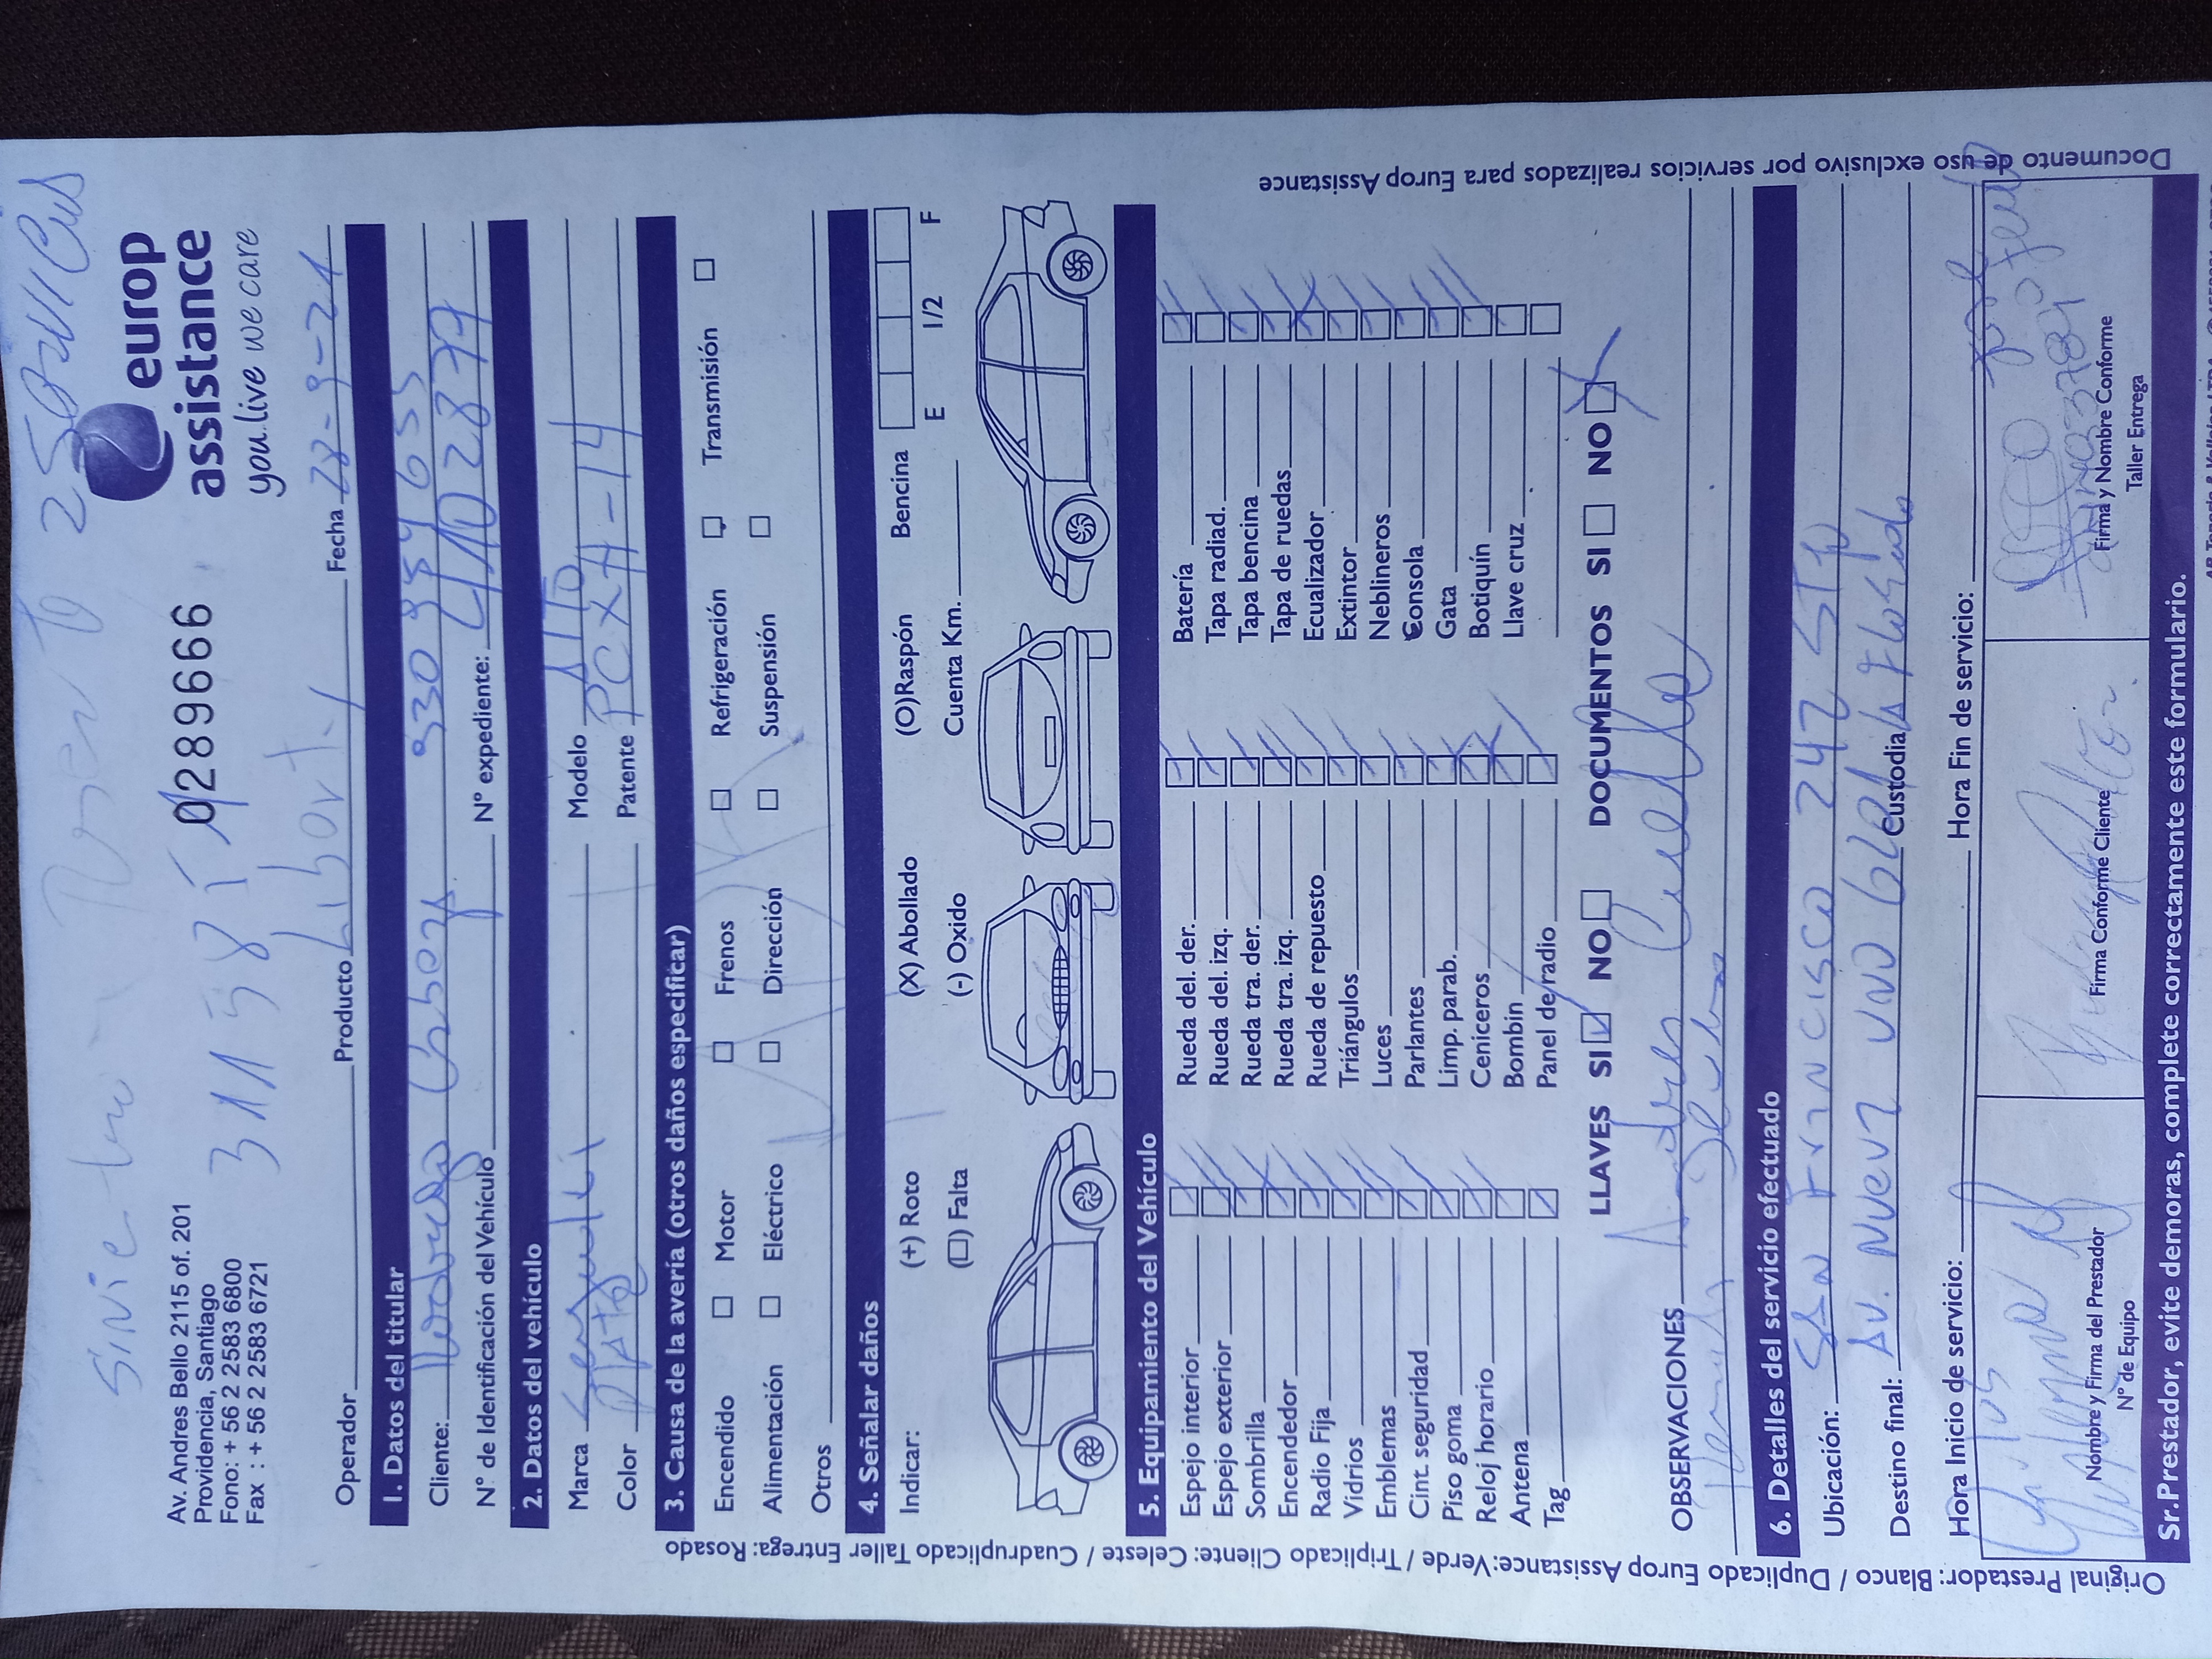 25
Av. Andres Bello 2115 of. 201
Providencia, Santiago
Fono: + 56 2 2583 6800
Fax : + 56 2 2583 6721
0289666
europ
assistance
you live we care
Operador
Producto Liberty
Fecha 28-9-21
1. Datos del titular
Cliente:
N° de Identificación del Vehículo
N° expediente:
2. Datos del vehículo
Marca
Modelo Alto
Color Plata
Patente PCXH-14
3. Causa de la avería (otros daños especificar)
Encendido
Motor
Frenos
Refrigeración
Transmisión
Alimentación
Eléctrico
Dirección
Suspensión
Otros
4. Señalar daños
Indicar:
(+) Roto
(X) Abollado
(O)Raspón
Bencina
E 1/2 F
(☐) Falta
(-) Oxido
Cuenta Km.
5. Equipamiento del Vehículo
Espejo interior
Rueda del. der.
Batería
Espejo exterior
Rueda del. izq.
Tapa radiad.
Sombrilla
Rueda tra. der.
Tapa bencina
Encendedor
Rueda tra. izq.
Tapa de ruedas
Radio Fija
Rueda de repuesto
Ecualizador
Vidrios
Triángulos
Extintor
Emblemas
Luces
Neblineros
Cint. seguridad
Parlantes
Consola
Piso goma
Limp. parab.
Gata
Reloj horario
Ceniceros
Botiquín
Antena
Bombin
Llave cruz
Tag
Panel de radio
LLAVES SI NO DOCUMENTOS SI NO
OBSERVACIONES Andres
6. Detalles del servicio efectuado
Ubicación: San Francisco 247 STGO
Destino final: AV. Nueva Uno
Custodia
Hora Inicio de servicio:
Hora Fin de servicio:
Nombre y Firma del Prestador
N° de Equipo
Firma Conforme Cliente
Firma y Nombre Conforme
Taller Entrega
Sr. Prestador, evite demoras, complete correctamente este formulario.
Original Prestador: Blanco / Duplicado Europ Assistance: Verde / Triplicado Cliente: Celeste / Cuadruplicado Taller Entrega: Rosado
Documento de uso exclusivo por servicios realizados para Europ Assistance